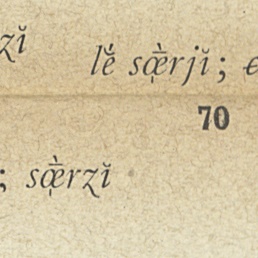 zĭ
lẹ́ sœ̣̀rjĭ ;
70
; sœ̣̀rzĭ